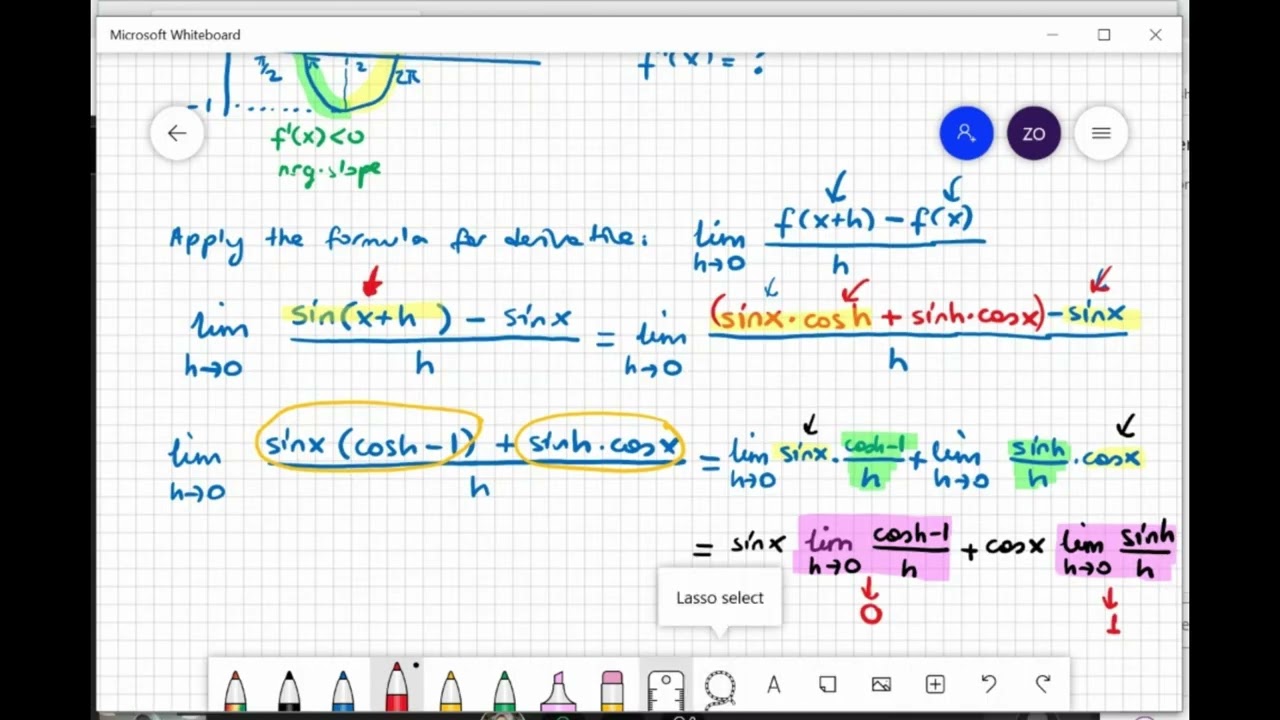 Microsoft Whiteboard
π/2 π 2 2π f'(x) = ?
-1
f'(x)<0
neg. slope
ZO
Apply the formula for derivative: lim h→0 f(x+h) - f(x) / h
lim h→0 sin(x+h) - sinx / h = lim h→0 (sinx·cosh + sinh·cosx) - sinx / h
lim h→0 sinx (cosh-1) + sinh·cosx / h = lim h→0 sinx · cosh-1 / h + lim h→0 sinh / h · cosx
= sinx lim h→0 cosh-1 / h + cosx lim h→0 sinh / h
0 1
Lasso select
A